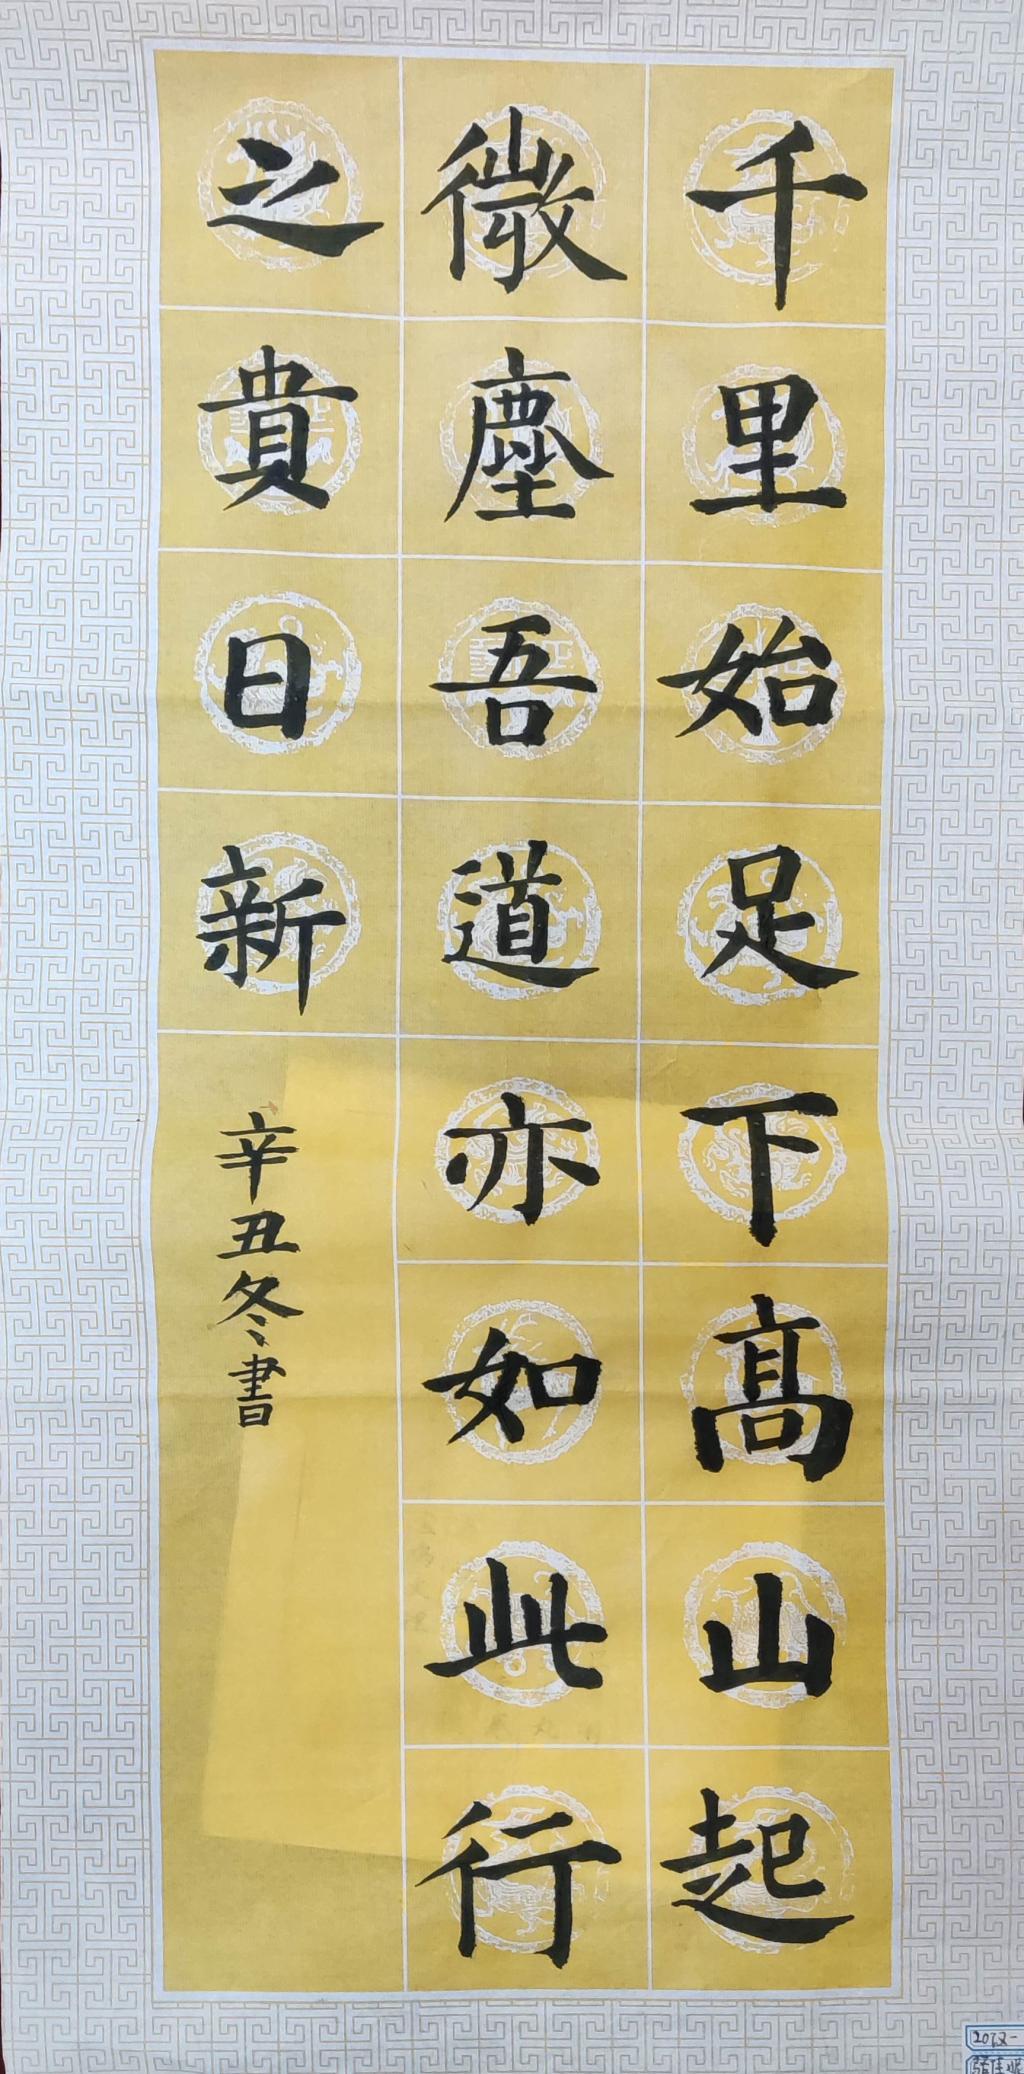 千里始足下高山起
微塵吾道亦如此行
之貴日新
辛丑冬書